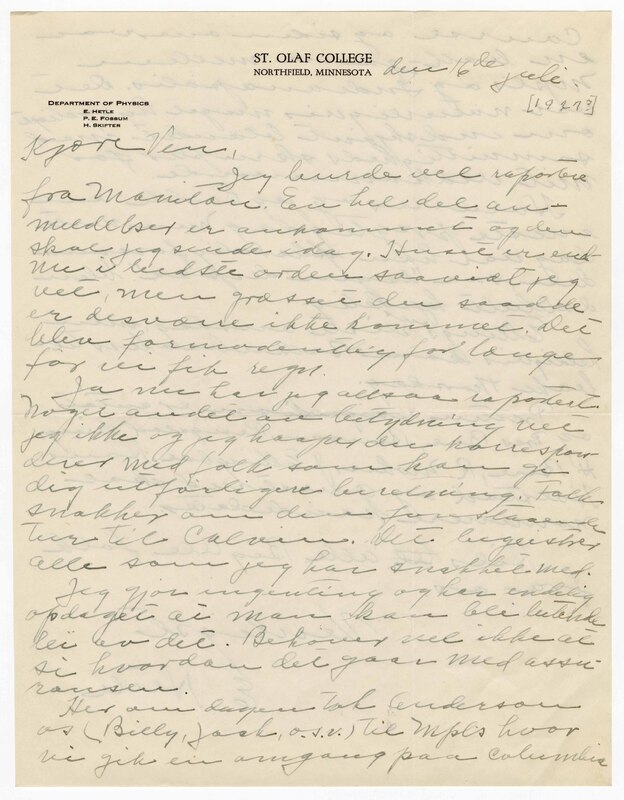 ST. OLAF COLLEGE
NORTHFIELD, MINNESOTA
den 16de juli.
[1927?]
DEPARTMENT OF PHYSICS
E. HETLE
P. E. FOSSUM
H. SKIFTER
Kjære Ven,
Jeg burde vel raportere
fra Manitou. En hel del an-
meldelser er ankommet og dem
skal jeg sende idag. Huset er end-
nu i bedste orden saavidt jeg
vet, men græsset du saadde
er desværre ikke kommet. Det
blev formodentlig for længe
før vi fik regn.
Ja nu har jeg altsaa raportert.
Noget andet av betydning vet
jeg ikke og jeg haaper du korrespon-
derer med folk som kan gi
dig utførligere beretning. Folk
snakker om den forestaaende
tur til Calvin. Det begeistrer
alle som jeg har snakket med.
Jeg gjør ingenting og har endelig
opdaget at man kan bli
lei av det. Behøver vel ikke at
si hvordan det gaar med assu-
ransen.
Her om dagen tok Anderson
os (Billy, Jack, o.s.v.) til Mpls hvor
vi gik en omgang paa Columbia